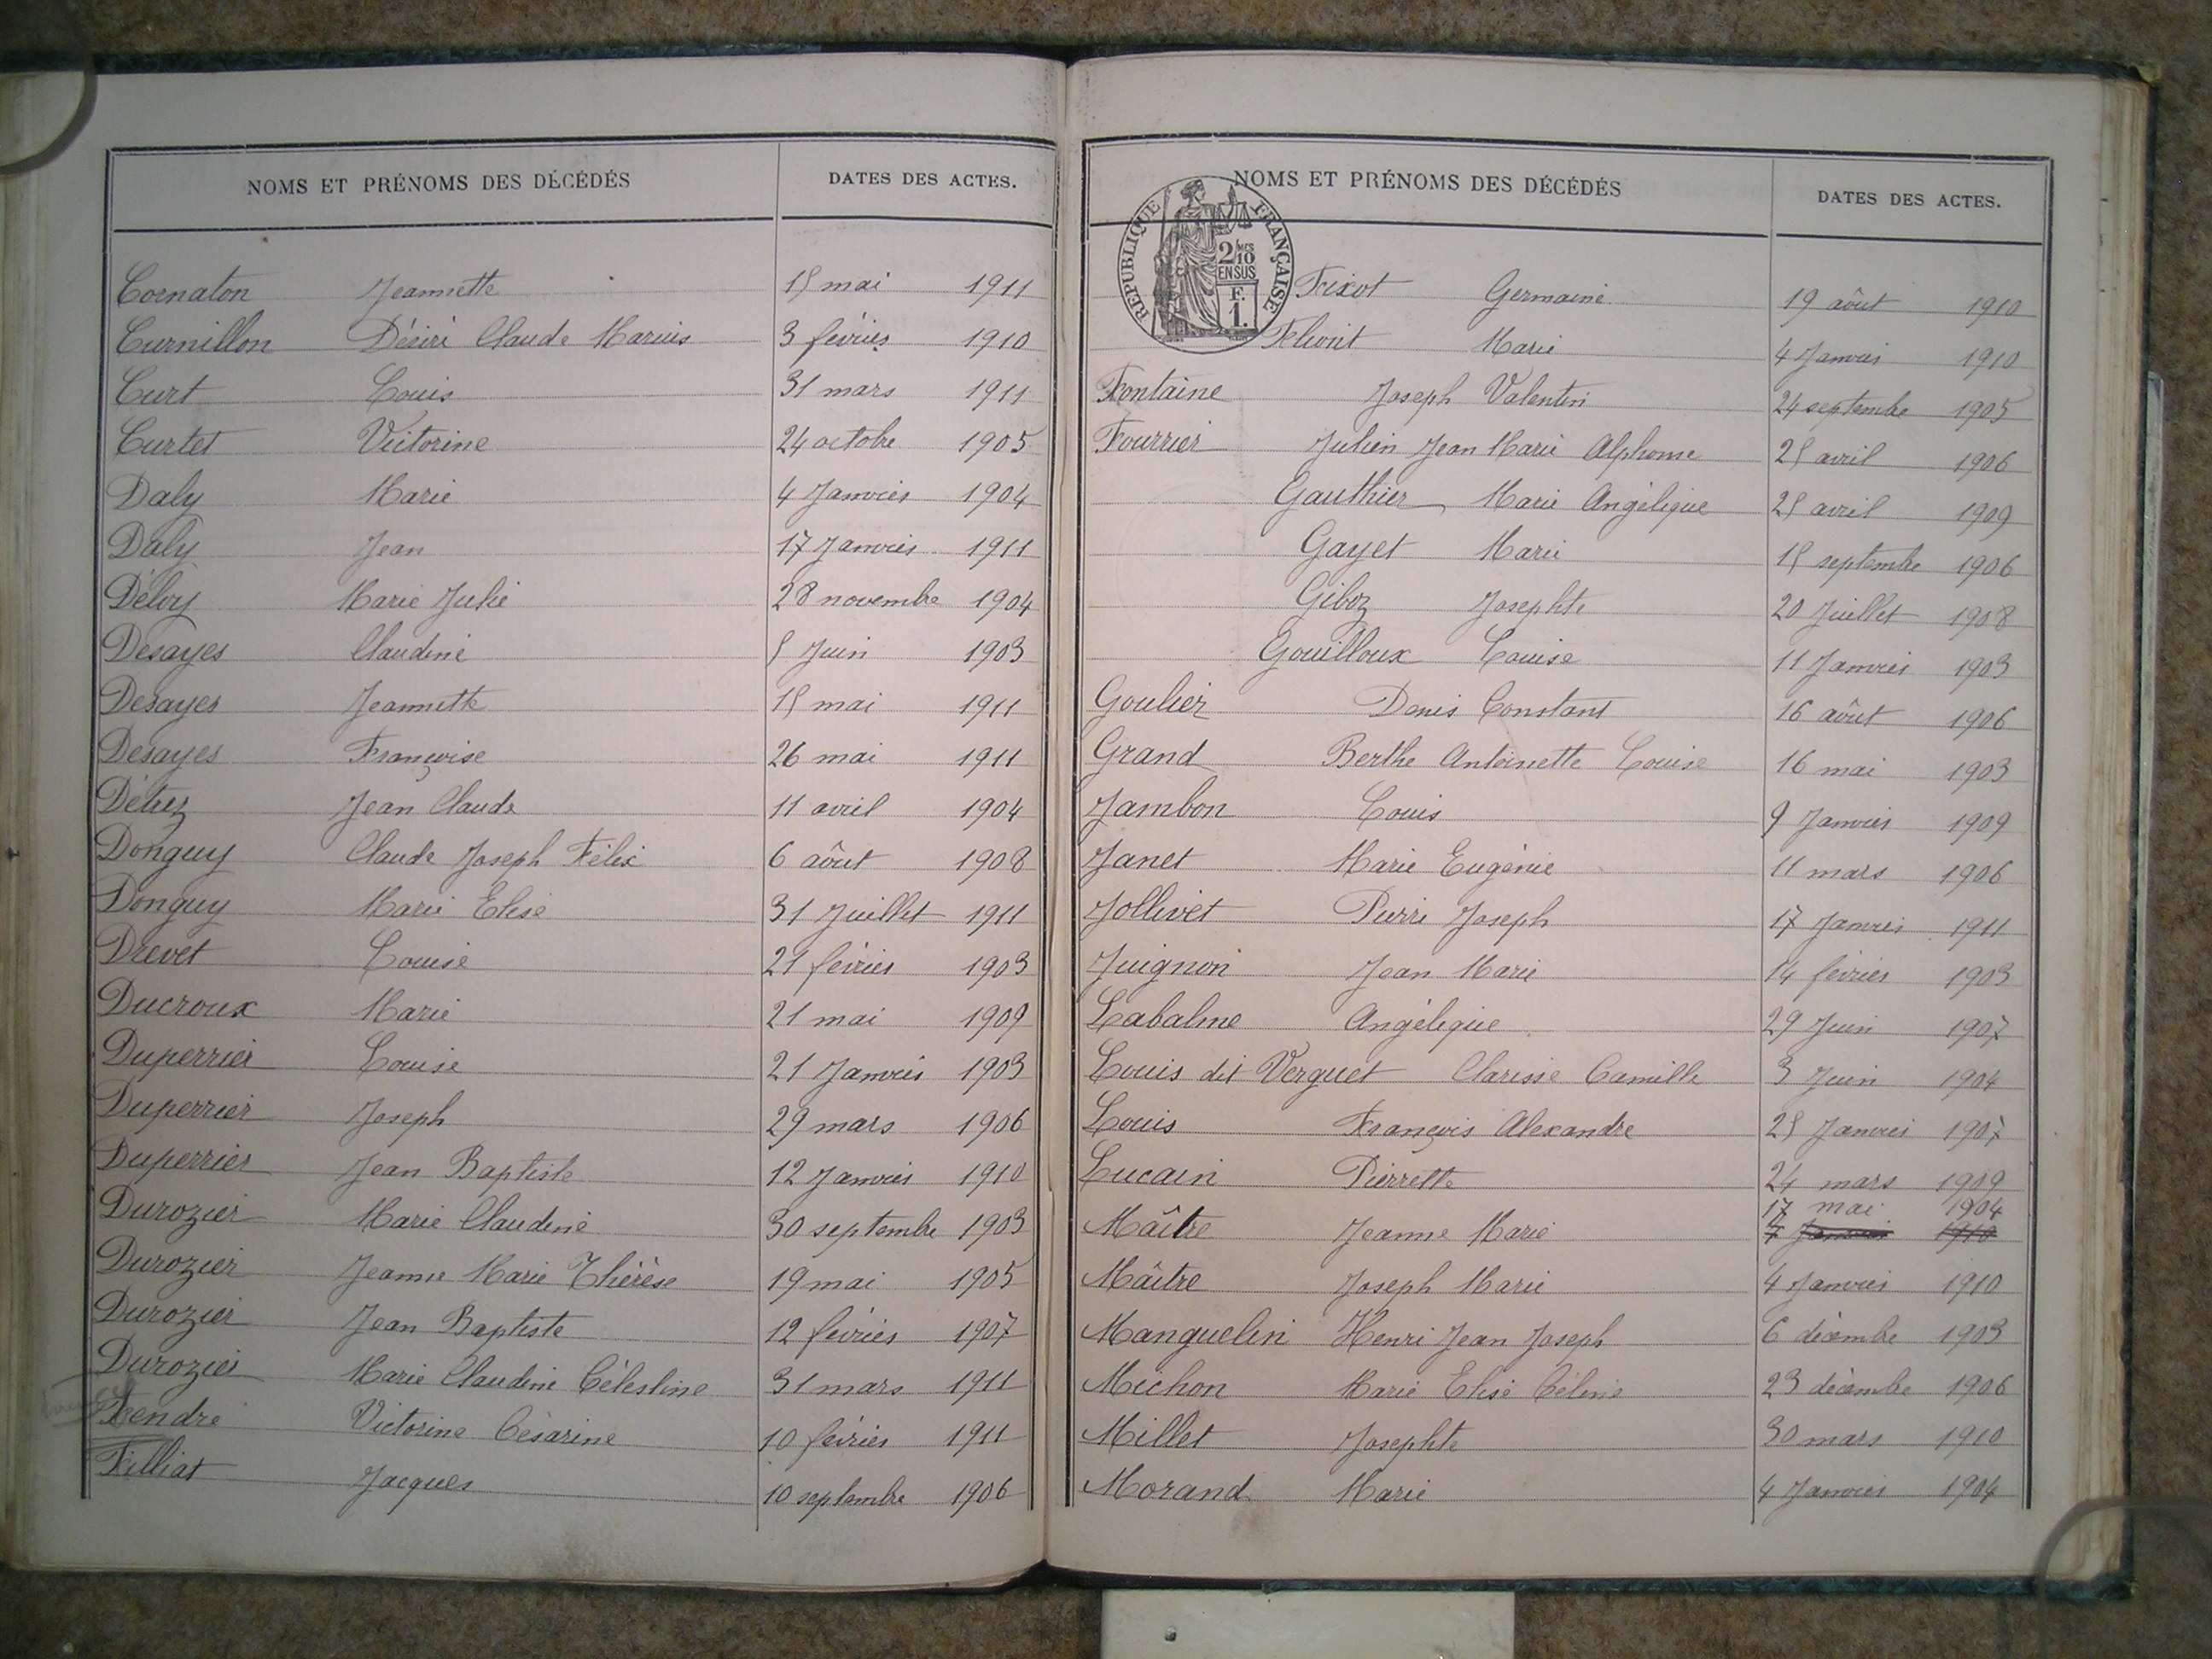 NOMS ET PRÉNOMS DES DÉCÉDÉS DATES DES ACTES.
Cornaton Jeannette 15 mai 1911
Curnillon Désiré Claude Marius 3 février 1910
Curt Louis 31 mars 1911
Curtet Victorine 24 octobre 1905
Daly Marie 4 Janvier 1904
Daly Jean 17 Janvier 1911
Déloy Marie Julie 28 novembre 1904
Desayes Claudine 5 Juin 1903
Desayes Jeannette 15 mai 1911
Desayes Françoise 26 mai 1911
Jean Claude 11 avril 1904
Donguy Claude Joseph Félix 6 août 1908
Donguy Marie Elise 31 Juillet 1911
Drevet Louise 21 février 1903
Ducroux Marie 21 mai 1909
Duperrier Louise 21 Janvier 1903
Duperrier Joseph 29 mars 1906
Duperrier Jean Baptiste 12 Janvier 1910
Durozier Marie Claudine 30 septembre 1903
Durozier Jeanne Marie Thérèse 19 mai 1905
Durozier Jean Baptiste 12 février 1907
Durozier Marie Claudine Célestine 31 mars 1911
Fendre Victorine Césarine 10 février 1911
Filliat Jacques 10 septembre 1906
NOMS ET PRÉNOMS DES DÉCÉDÉS DATES DES ACTES.
REPUBLIQUE FRANÇAISE
2 MES
10
EN SUS
F.
1.
Germaine 19 août 1910
Marie 4 Janvier 1910
Fontaine Joseph Valentin 24 septembre 1905
Fourrier Julien Jean Marie Alphonse 25 avril 1906
Gauthier Marie Angélique 25 avril 1909
Gayet Marie 15 septembre 1906
Giboz Josephte 20 Juillet 1908
Gouilloux Louise 11 Janvier 1903
Goulier Denis Constant 16 août 1906
Grand Berthe Antoinette Louise 16 mai 1903
Jambon Louis 9 Janvier 1909
Janet Marie Eugénie 11 mars 1906
Jollivet Pierre Joseph 17 Janvier 1911
Juignon Jean Marie 14 février 1903
Labalme Angélique 29 Juin 1907
Louis dit Verguet Clarisse Camille 3 Juin 1904
Louis François Alexandre 25 Janvier 1907
Lucain Pierrette 24 mars 1909
17 mai 1904
Maître Jeanne Marie 4 Janvier 1910
Maître Joseph Marie 4 Janvier 1910
Manguelin Henri Jean Joseph 6 décembre 1903
Michon Marie Elise Céline 23 décembre 1906
Millet Josephte 30 mars 1910
Morand Marie 4 Janvier 1904